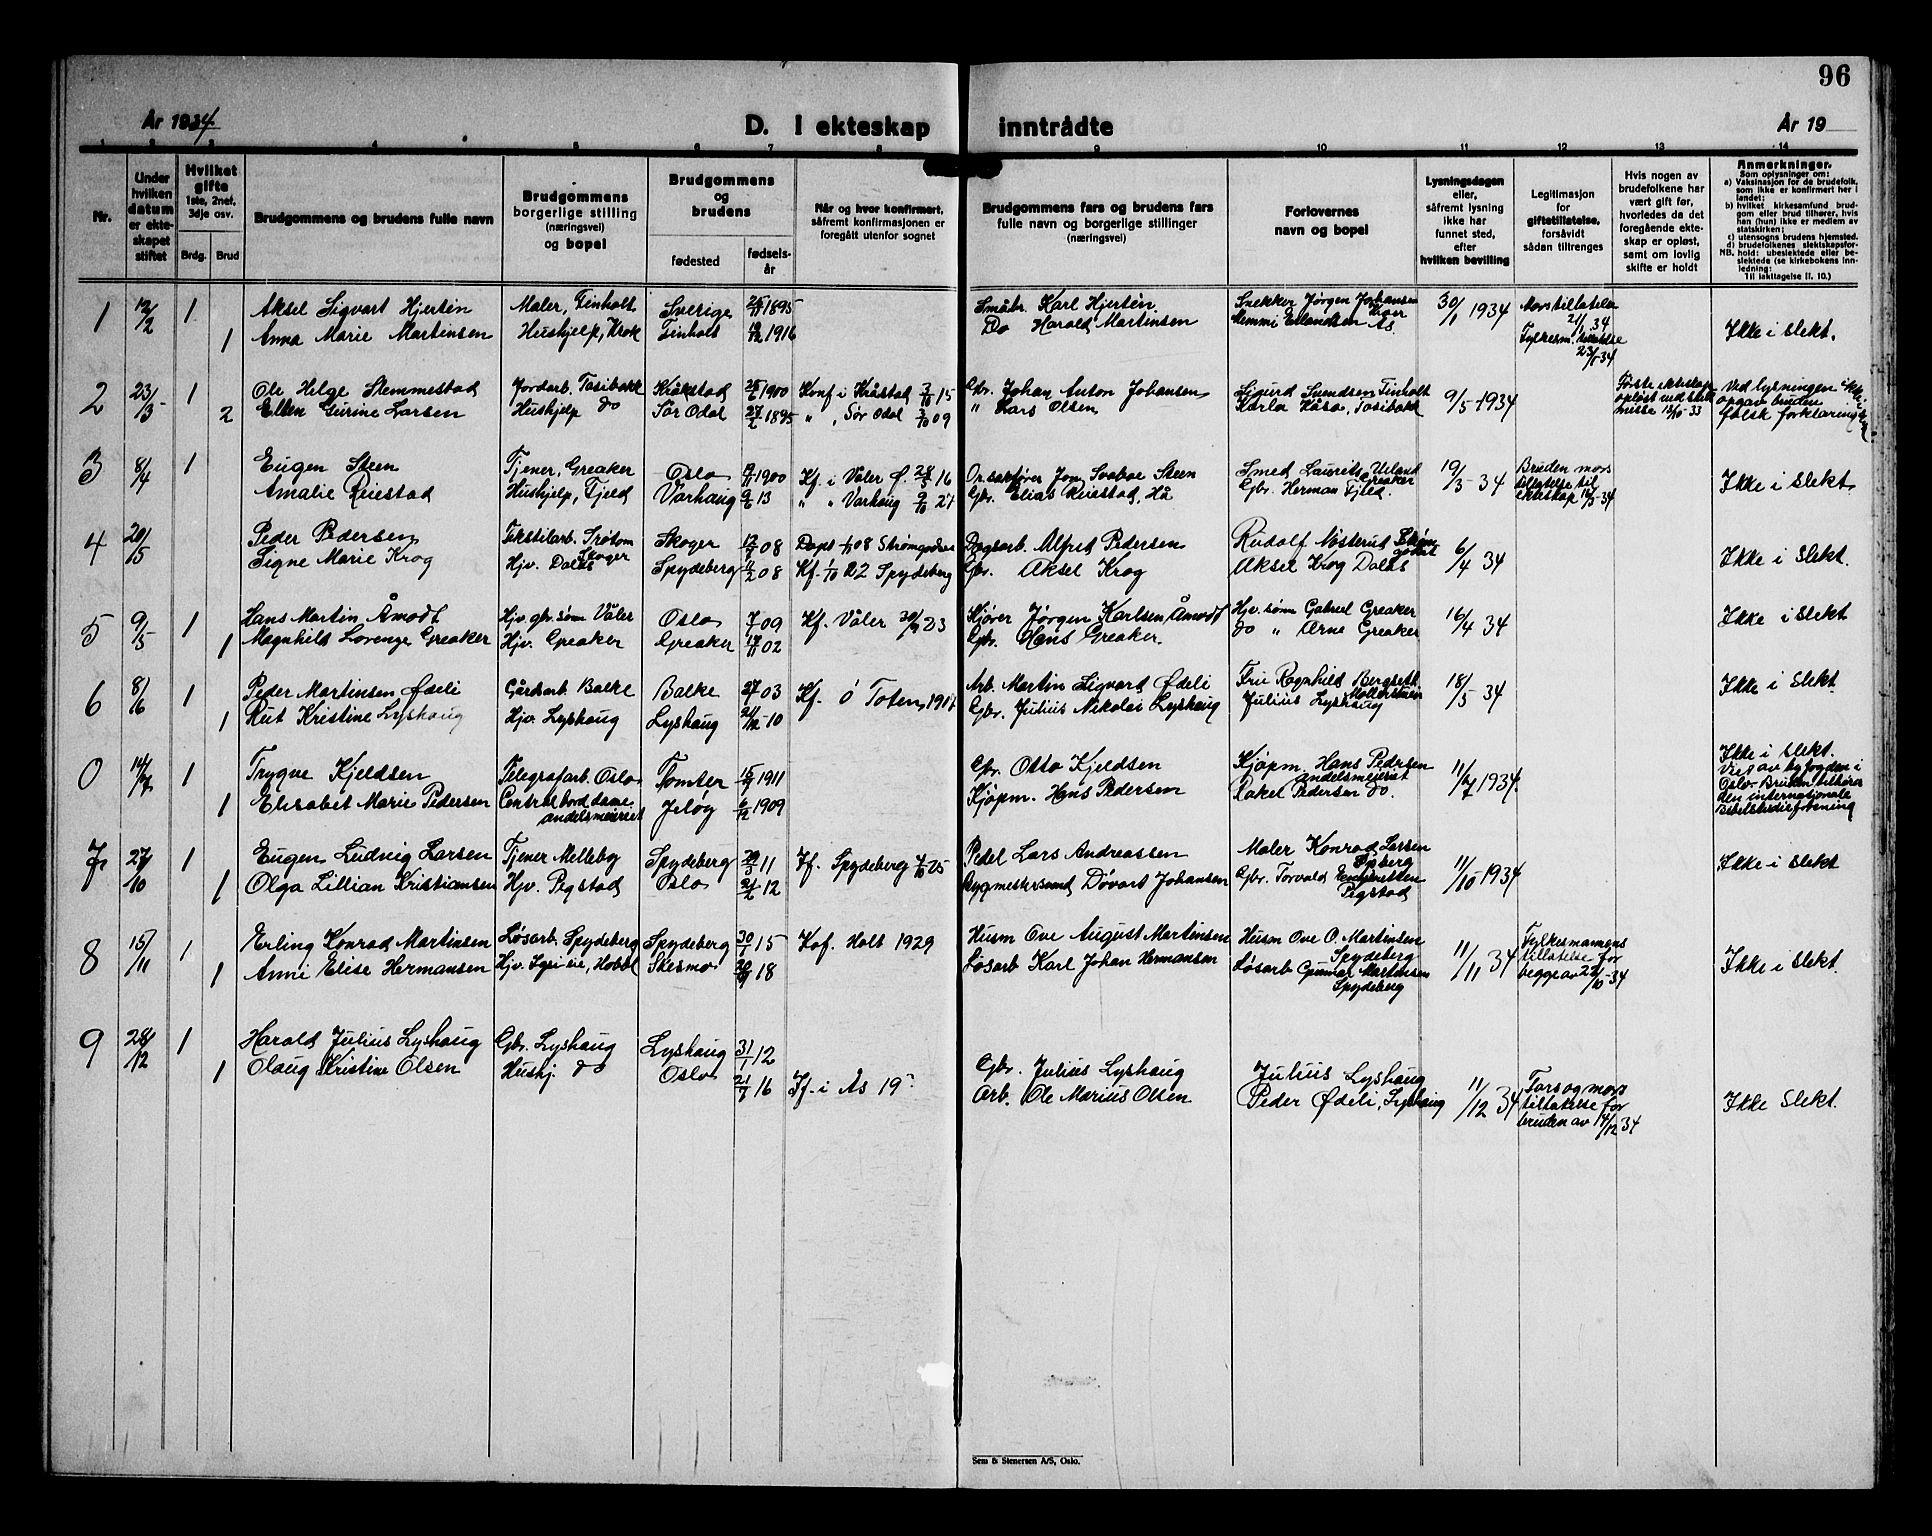 96
År 1934
D. I ekteskap inntrådte
År 19
1 2 3 4 5 6 7 8 9 10 11 12 13 14
Nr.
Under hvilken datum er ekteskapet stiftet
Hvilket gifte
1ste, 2net, 3dje osv.
Brdg. Brud
Brudgommens og brudens fulle navn
Brudgommens
borgerlige stilling
(næringsvei)
og bopel
Brudgommens
og
brudens
fødested
fødsels-
år
Når og hvor konfirmert,
såfremt konfirmasjonen er
foregått utenfor sognet
Brudgommens fars og brudens fars
fulle navn og borgerlige stillinger
(næringsvei)
Forlovernes
navn og bopel
Lysningsdagen
eller,
såfremt lysning
ikke har
funnet sted,
efter
hvilken bevilling
Legitimasjon
for
giftetillatelse,
forsåvidt
sådan tiltrenges
Hvis nogen av
brudefolkene har
vært gift før,
hvorledes da det
foregående ekte-
skap er opløst,
samt om lovlig
skifte er holdt
Anmerkninger.
Som oplysninger om:
a) Vaksinasjon for de brudefolk,
som ikke er konfirmert her i
landet:
b) hvilket kirkesamfund brud-
gom eller brud tilhører, hvis
han (hun) ikke er medlem av
statskirken:
c) utensogns brudens hjemsted.
d) brudefolkenes slektskapsfor-
NB. hold: ubeslektede eller be-
slektede (se kirkebokens inn-
ledning:
Til iakttagelse II. 10.)
1 12/2 1 Aksel Sigvart Hjertén Maler, Finholt Sverige 1895 Småbr. Karl Hjertén. Snekker Jørgen Johansen 30/1 1934 Mors tillatelse
21/1 34
1 Anna Marie Martinsen Hushjelp, Krok Finholt 1916 Do Harald Martinsen Memmi Erlandsen Ås Fylkesm. tillatelse
23/1-34 Ikke i slekt.
2 23/3 1 Ole Helge Stemmestad Jordarb. Tosibekk Kråkstad 1900 Konf i Kråkstad 15 Gbr. Johan Anton Johansen Sigurd Svendsen Finholt 9/5-1934 Første ekteskap Ved lysningen
2 Ellen Gurine Larsen Hushjelp do Sør Odal 27/2 1895 " , Sør Odal 09 " Lars Olsen Karla Kåsa, Tosibekk opløst ved skils-
misse 33 opgav bruden
falsk forklaring
3 8/4 1 Eugen Steen Tjener, Greaker Oslo 1900 Kf. i Våler 16 Jon Svaboe Steen Smed Laurits Ueland
Greaker 19/3-34 Bruden mors
Amalie Reiestad Hushjelp, Fjeld Varhaug 13 " " Varhaug 27 Gbr. Elias Reiestad, Hå Gbr. Herman Fjeld. tillatelse til
ekteskap -34 Ikke i slekt
4 20/5 Peder Pedersen Tekstilarb. Skoger 08 Døpt 08 Strømgodset Dagarb. Alfred Pedersen Rudolf Nøsterud 6/4 34
Signe Marie Krog Hjv. Dalås Spydeberg 08 Kf. 1/10 22 Spydeberg Gbr. Aksel Krog Aksel Krog Dalås Ikke i slekt.
5 9/5 1 Hans Martin Åmodt Hjv. gbr. søm Våler Oslo 7/7 09 Kf. Våler 30/9 23 Kjører Jørgen Karlsen Åmodt Hjv. søm Gabriel Greaker 16/4 34 Ikke i slekt
1 Magnhild Lorenze Greaker Hjv. Greaker Greaker 17/11 02 Gbr. Hans Greaker. do " Arne Greaker
6 8/6 1 Peder Martinsen Ødeli Gårdsarb. Balke Balke 03 Kf. Ø Toten, 1917 Arb. Martin Sigvard Ødeli Fru Ragnhild Bergseth 18/5 34 Ikke i slekt.
1 Rut Kristine Lyshaug Hjv. Lyshaug Lyshaug 10 Gbr. Julius Nikolai Lyshaug Julius Lyshaug
0 14/7 1 Trygve Kjeldsen Telegrafarb. Oslo Tomter 1911 Gbr. Otto Kjeldsen Kjøpm. Hans Pedersen
andelsmeieriet 11/7 1934. Ikke i slekt.
Viet av byfogden i
Oslo. Bruden tilhører
1 Elisabet Marie Pedersen Centralborddame
andelsmeieriet Jeløy 1909 Kjøpm. Hans Pedersen Rakel Pedersen do. den internationale
bibelstudieforening
7 27/10 1 Eugen Ludvig Larsen Tjener Melleby Spydeberg 11 Kf. Spydeberg 25 Pedel Lars Andreassen Maler Konrad Larsen
Spberg 11/10 1934 Ikke i slekt
1 Olga Lillian Kristiansen Hjv. Pigstad Oslo 12 Byggmester Johansen Gbr. Torvald
Pigstad
8 15/11 1 Erling Konrad Martinsen Løsarb. Spydeberg Spydeberg 30/1 15 Kof. Holt 1929 Husm Ove August Martinsen Husm Ove O. Martinsen
Spydeberg 11/11 34 Fylkesmannens
tillatelse for
1 Anni Elise Hermansen Hjv. Hobøl Skesmo 18 Løsarb Karl Johan Hermansen Løsarb Gunnar Martinsen
Spydeberg begge av /10-34 Ikke i slekt.
9 28/12 1 Harald Julius Lyshaug Gbr. Lyshaug Lyshaug 31/1 12 Gbr. Julius Lyshaug Julius Lyshaug 11/12 34 Fars og mors
1 Olaug Kristine Olsen Hushj. do Oslo 21/7 16 Kf. i Ås 19 Arb. Ole Marius Olsen Peder Ødeli, Lyshaug tillatelse for
bruden av 14/12 34 Ikke slekt.
Sem & Stenersen A/S, Oslo.